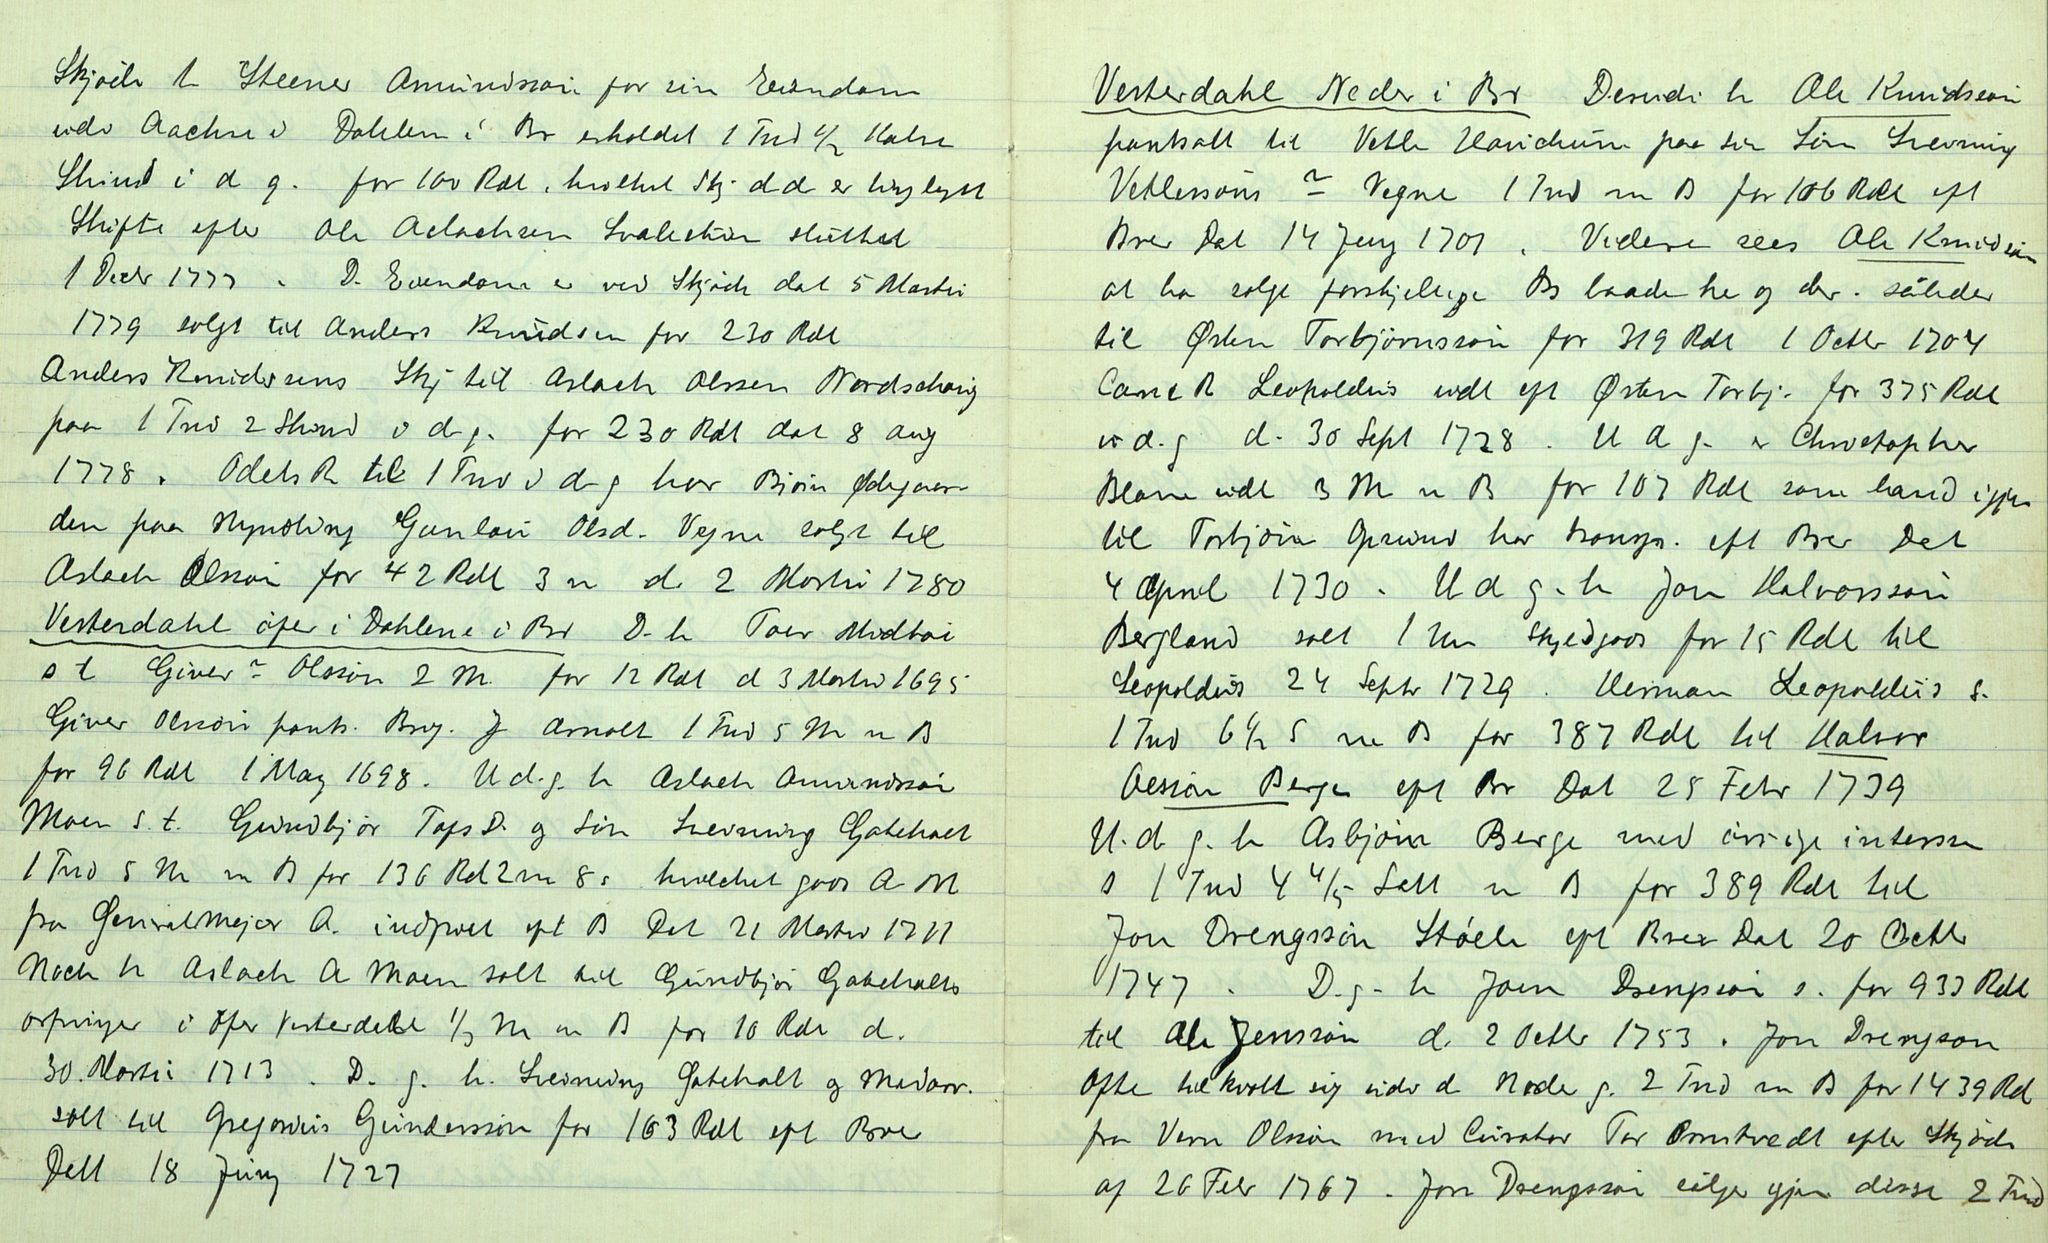 Skjøde h Steener Amundssøn for sin Eiendom
udi Aachre i Dahlen i Br erholdet 1 Tnd 4/2 Kalve
Skind i d g. for 100 Rdl. hvilket Skj d d er tinglyst
Skifte efter Ole Aslachsen Svalestuen sluttet
1 Decbr 1777. D. Eiendom er ved Skjøde dat 5 Martii
1779 solgt til Anders Knudsen for 230 Rdl
Anders Knudsens Skj til Aslach Olssen Nordschoug
paa 1 Tnd 2 Skind i d. g. for 230 Rdl dat 8 aug
1778. Odels R til 1 Tnd i d g har Biørn Ødegaar-
den paa Myndling Gunlau Olsd. Vegne solgt til
Aslach Olssøn for 42 Rdl 3 m d. 2 Martii 1780
Vesterdahl öfer i Dahlene i Br D. h Toer Midbøi
s t Giver Olssøn 2 M. for 12 Rdl d 3 Martii 1695
Giver Olssøn pants. Brg. J Arnolt 1 Tnd 5 M m B
for 96 Rdl 1 May 1698. U d. g. h Aslach Amundssøn
Moen s. t. Gundbjør Tops D. og Søn Svenning Gateholt
1 Tnd 5 M m B for 136 Rd 2 m 8 s hvilchet gods A M
fra GeneralMajor A. indfriet eft B Dat 21 Martii 1711
Noch h Aslach A Moen solt til Gundbjør Gateholts
arfinger i öfer Vesterdahl 1/3 M m B for 10 Rdl d.
30. Martii 1713. D. g. h. Svenning Gateholt og Medarv.
solt til Gregorius Gunderssøn for 163 Rdl eft Brev
Datt 18 Juny 1727
Vesterdahl Neder i Br Desudi h Ole Knudssøn
pantsatt til Vetle Harichuus paa sin Søn Svenning
Vetlessøns Vegne 1 Tnd m B for 106 Rdl eft
Brev Dat 14 Juny 1701. Videre sees Ole Knudssøn
at ha solgt forskjellige B baade he og der. således
til Østen Torbjørnssøn for 319 Rdl 1 Octbr 1704
Canc R Leopoldus udt eft Østen Torbj. for 375 Rdl
i d. g d. 30 Sept 1728. U d g. er Christopher
Blom udt 3 M m B for 107 Rdl som hand igjen
til Torbjørn Opsund har transp. eft Brev Dat
4 April 1730. U d g. h Jon Halvorssøn
Bergland solt 1 Hn Skyldgods for 15 Rdl til
Leopoldus 24 Septr 1729. Herman Leopoldus s.
1 Tnd 6 1/2 S m B for 387 Rdl til Halvor
Olssøn Berge eft Br Dat 25 Febr 1739
U. d. g. h Asbjørn Berge med övrige interssn
s 1 Tnd 4 4/5 Sett m B for 389 Rdl til
Jon Drengssøn Støele eft Brev Dat 20 Octbr
1747. D. g. h Joen Drengssøn s. for 933 Rdl
til Ole Jenssøn d. 2 Octbr 1753. Jon Drengson
Ofte til kvøtt sig udi d Nedre g. 2 Tnd m B for 1439 Rd
fra Vern Olssøn med Curator Tor Ormtvedt efter Skjøde
af 26 Febr 1767. Jon Drengssøn sælger igjen disse 2 Tnd